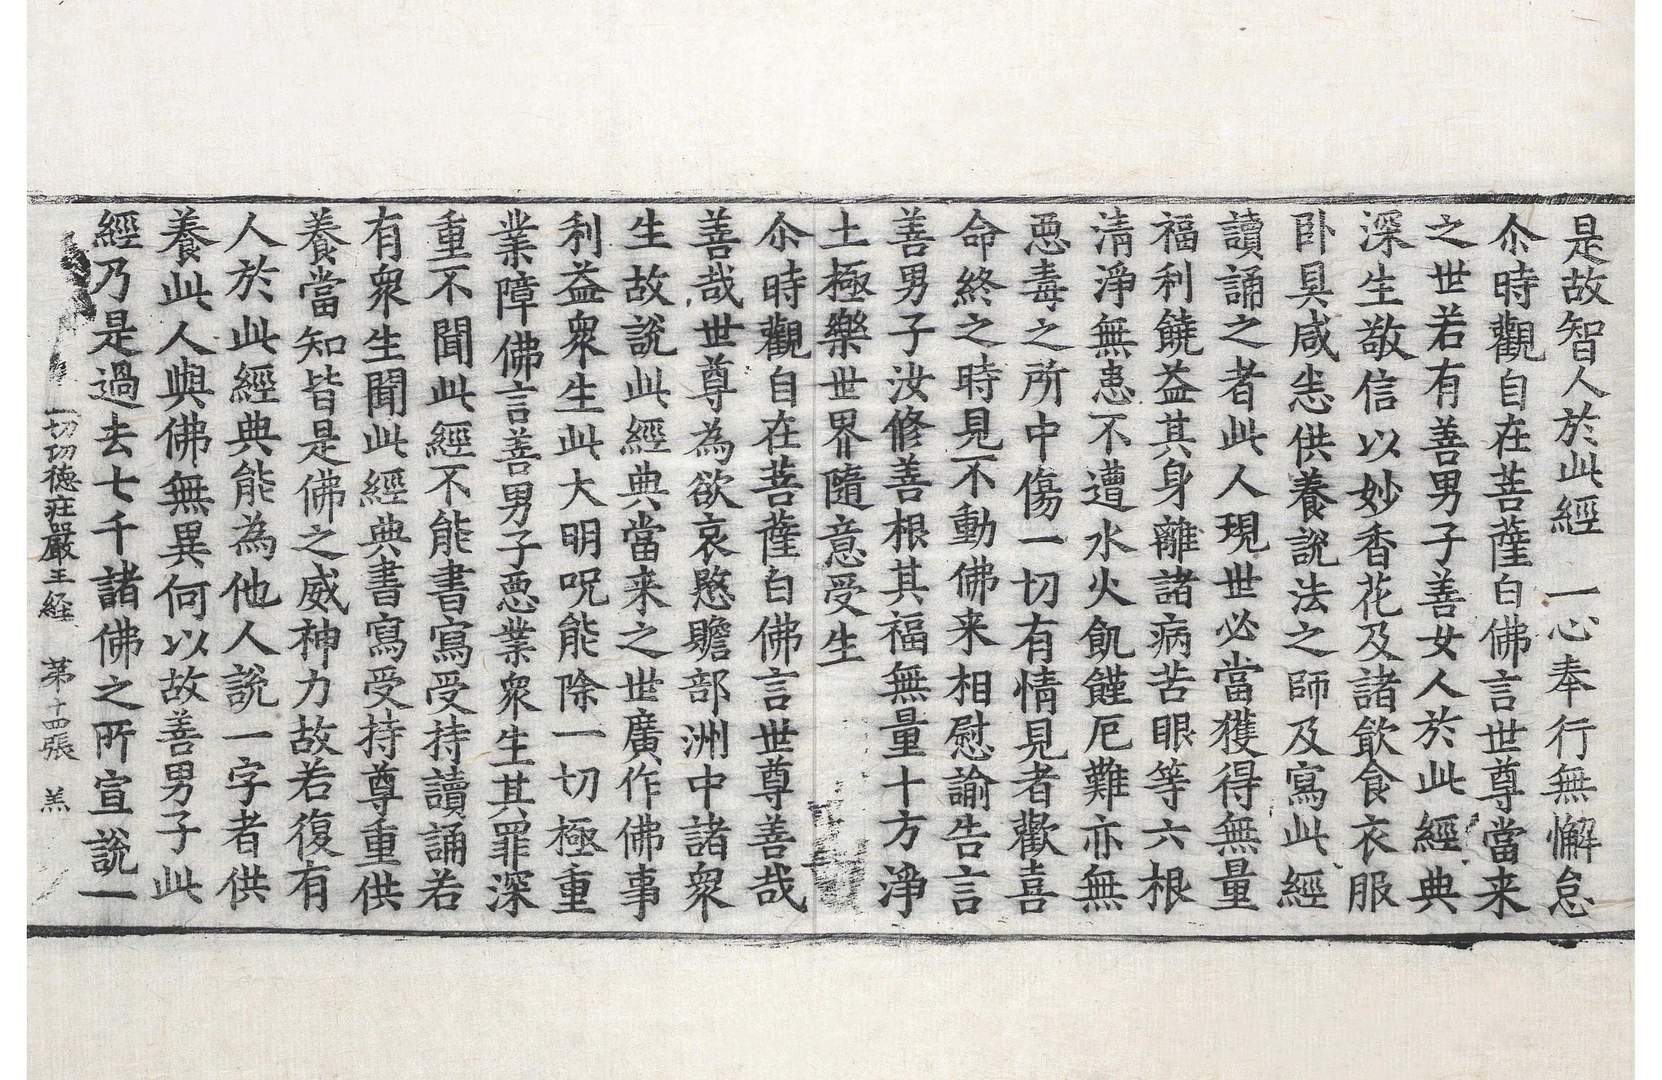 是故智人於此經　一心奉行無懈怠
尒時觀自在菩薩白佛言世尊當来
之世若有善男子善女人於此經典
深生敬信以妙香花及諸飲食衣服
卧具咸悉供養說法之師及寫此經
讀誦之者此人現世必當獲得無量
福利饒益其身離諸病苦眼等六根
清淨無患不遭水火飢饉厄難亦無
惡毒之所中傷一切有情見者歡喜
命終之時見不動佛来相慰諭告言
善男子汝修善根其福無量十方淨
土極樂世界隨意受生
尒時觀自在菩薩白佛言世尊善哉
善哉世尊為欲哀愍贍部洲中諸衆
生故說此經典當来之世廣作佛事
利益衆生此大明呪能除一切極重
業障佛言善男子惡業衆生其罪深
重不聞此經不能書寫受持讀誦若
有衆生聞此經典書寫受持尊重供
養當知皆是佛之威神力故若復有
人於此經典能為他人說一字者供
養此人與佛無異何以故善男子此
經乃是過去七千諸佛之所宣說一
一切功德庄嚴王経　第十四張　羔